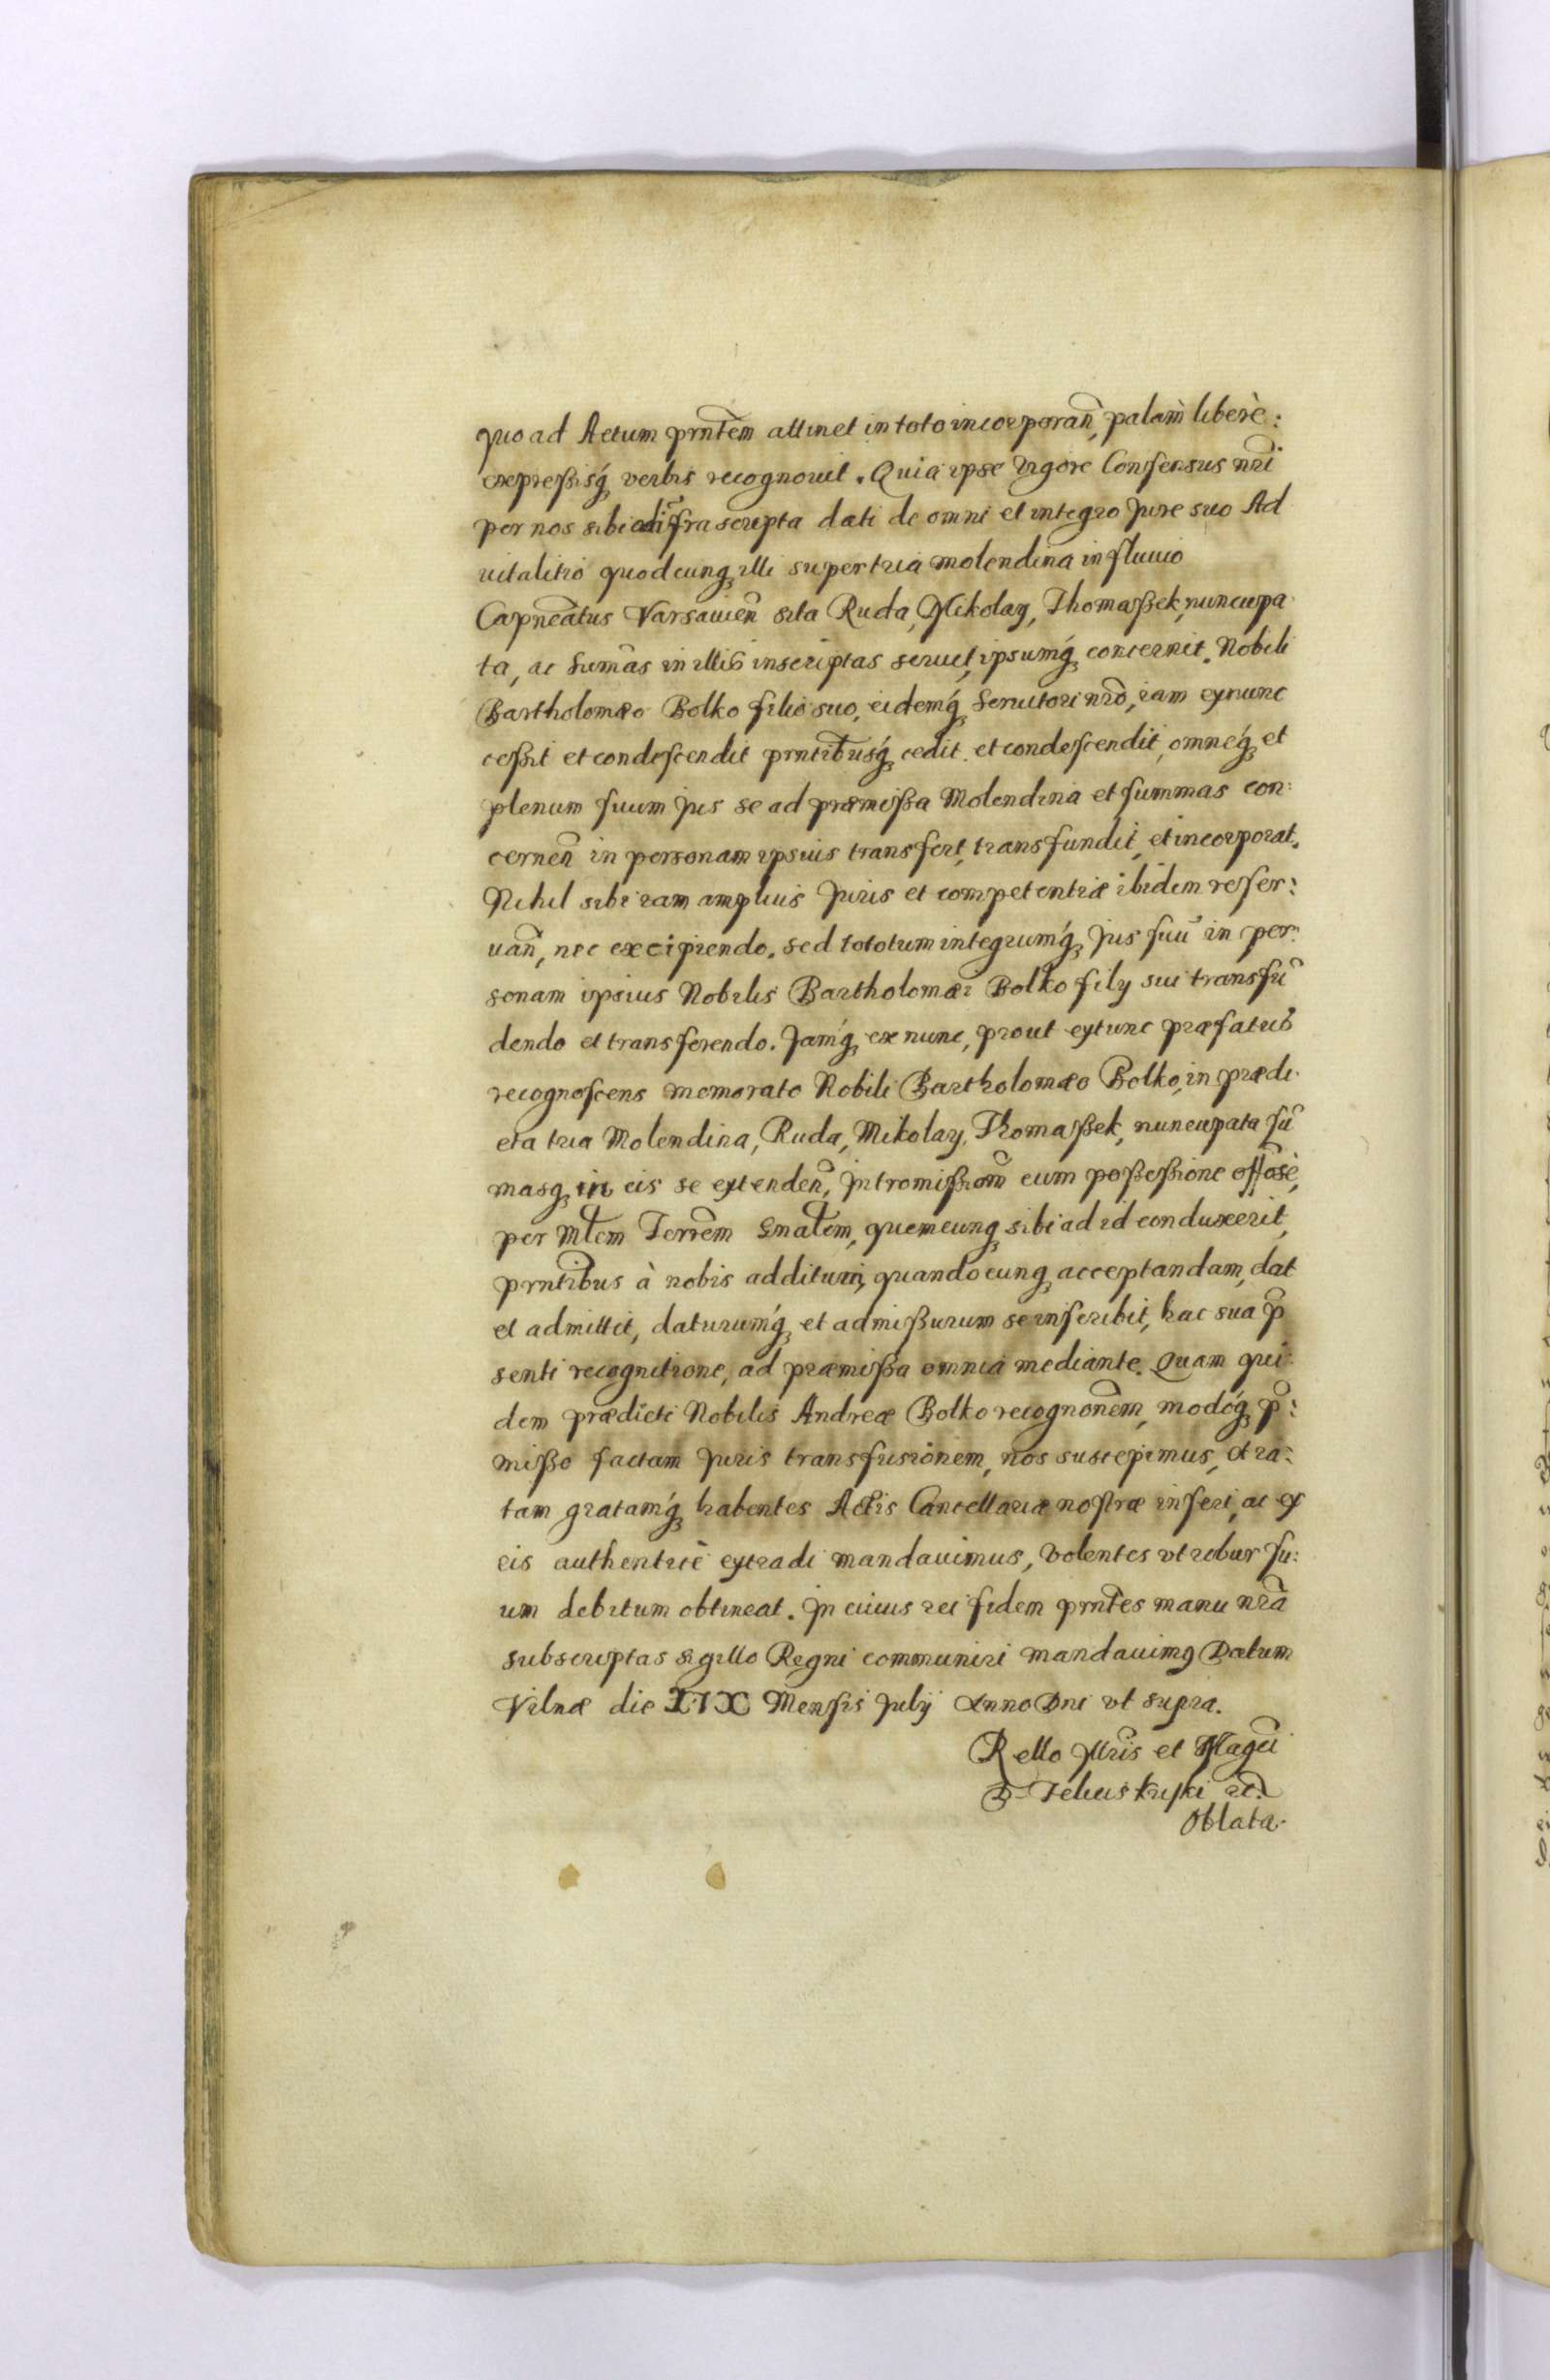 quo ad Actum prńtem attinet in toto incorporan̄, palam̀ liberè:
expreßisq́ꝫ verbis recognovit. Quia ipse vigore Consensus nr̄i
per nos sibi ad īfra scripta dati de omni et integro Jure suo Ad
vitalitio quodcunqꝫ illi super tria molendina in fluvio
Capnēatus Varsavien̄ sita Ruda, Mikolay, Thomaßek, nuncupa
ta, ac sum̄as in illis inscriptas servet, ipsumq́ꝫ concernit. Nobili
Bartholomæo Bolko filio suo, eidemq́ꝫ Servitori nr̄o, iam ex nunc
ceßit et condescendit prn̄tibusq́ꝫ cedit et condescendit, omneq́ꝫ et
plenum suum Jus se ad præmißa Molendina et summas con:
cernen̄ in personam ipsius transfert, transfundit, et incorporat.
Nihil sibi iam amplius Juris et competentiæ ibidem reser:
uan̄, nec excipiendo. sed tototum integrumq́ꝫ Jus suū in per:
sonam ipsius Nobilis Bartholomæi Bolko filij sui transfū
dendo et transferendo. Jamq́ꝫ ex nunc, prout ex tunc præfatus
recognoscens memorato Nobili Bartholomæo Bolko, in prædi
cta tria Molendina, Ruda, Mikolay, Thomaßek, nuncupata sū
masqꝫ in eis se extenden̄, Intromißiom̄ cum poßeßione offōsè,
per Mtem Terrem̄ Gnalem, quemcunqꝫ sibi ad id conduxerit,
prn̄tibus à nobis additum, quandocunqꝫ acceptandam, dat
et admittit, daturumq́ꝫ et admißurum se inscribit, hac sua p̄
senti recognitione, ad præmißa omnia mediante. Quam qui
dem prædicti Nobilis Andreæ Bolko recognonēm, modoq́ꝫ p̄:
mißo factam Juris transfusionem, nos suscepimus, et ra:
tam gratamq́ꝫ habentes Actis Cancellariæ nostræ inseri, ac ex
eis authenticè extradi mandavimus, volentes vt robur su:
um debitum obtineat. In cuius rei fidem prn̄tes manu nr̄a
subscriptas sigillo Regni communiri mandavimꝰ Datum
Vilnæ die XIX Mensis Julij Anno Dni vt supra.
Rello Jllris et Magci
D- Feliciskrijski rc̄
Oblata.